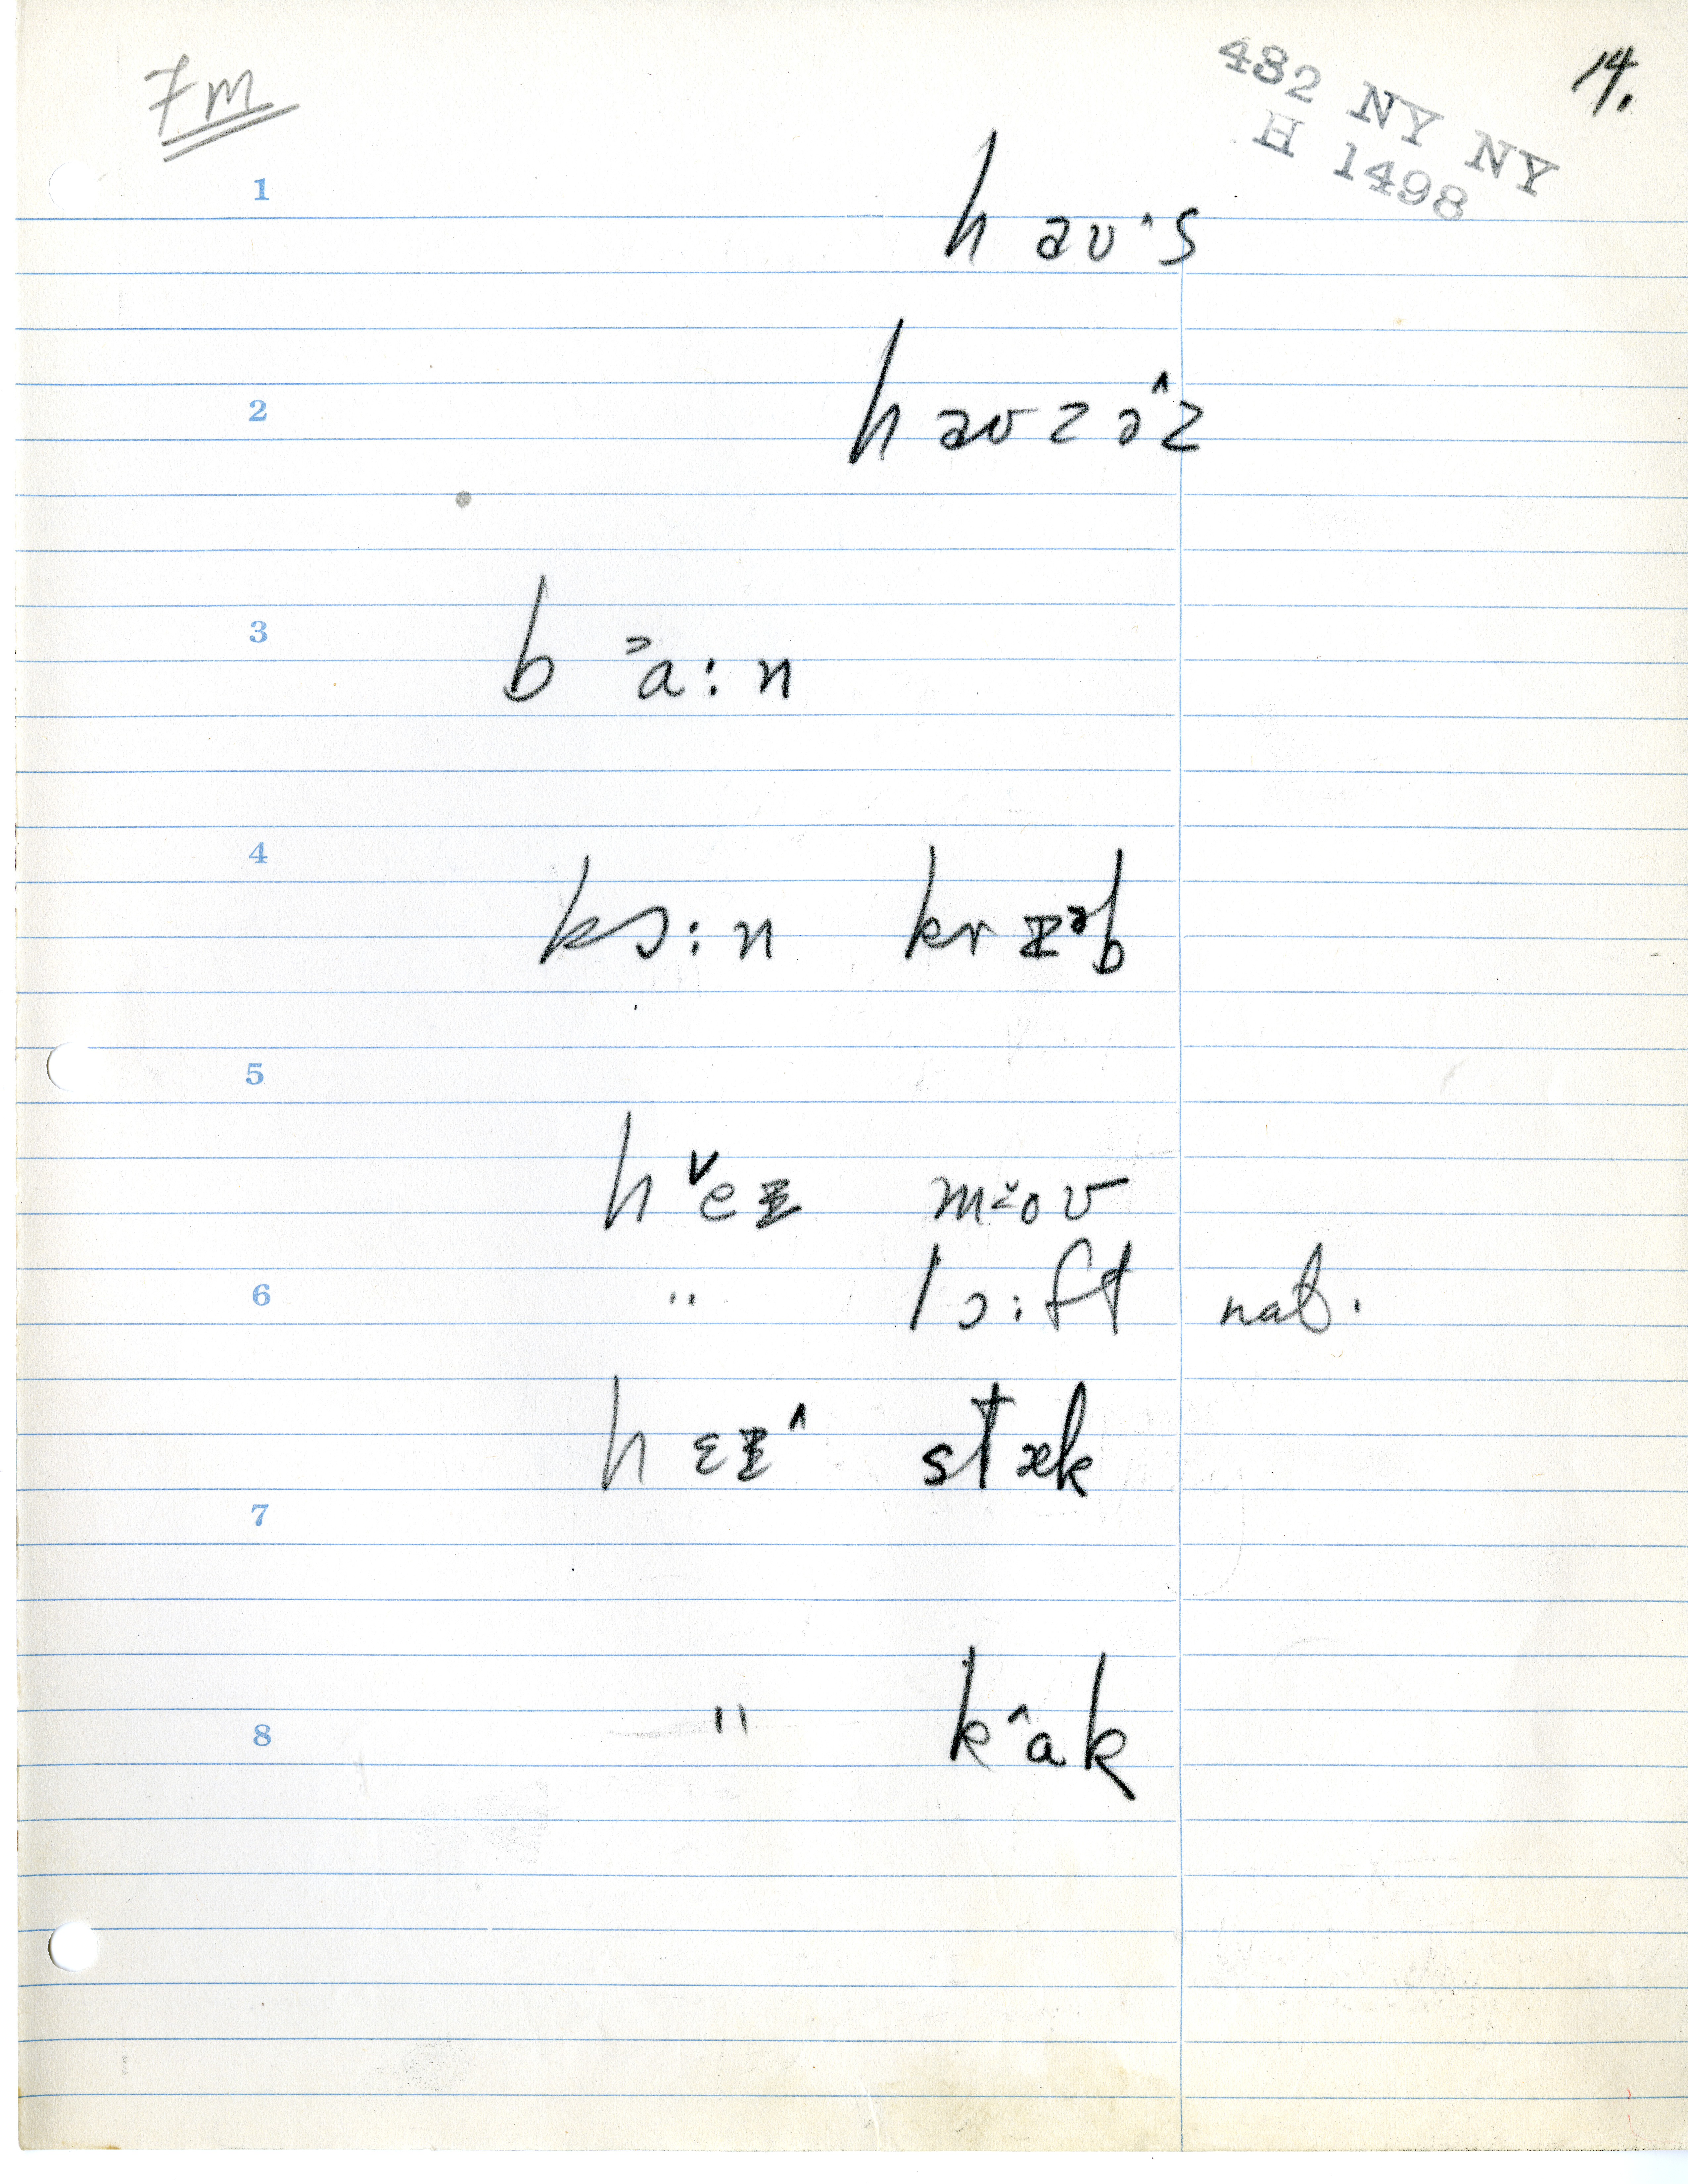 7m
432 NY NY 14.
H 1498
1
h aʊ^s
2
h aʊzə^z
3
b ˃a:n
4
kɔ:n krɪᵊb
5
h ˅eɪ m˃oʊ
6
" lɔ:ft nat.
hɛɪ^ stæk
7
8
" k^ak